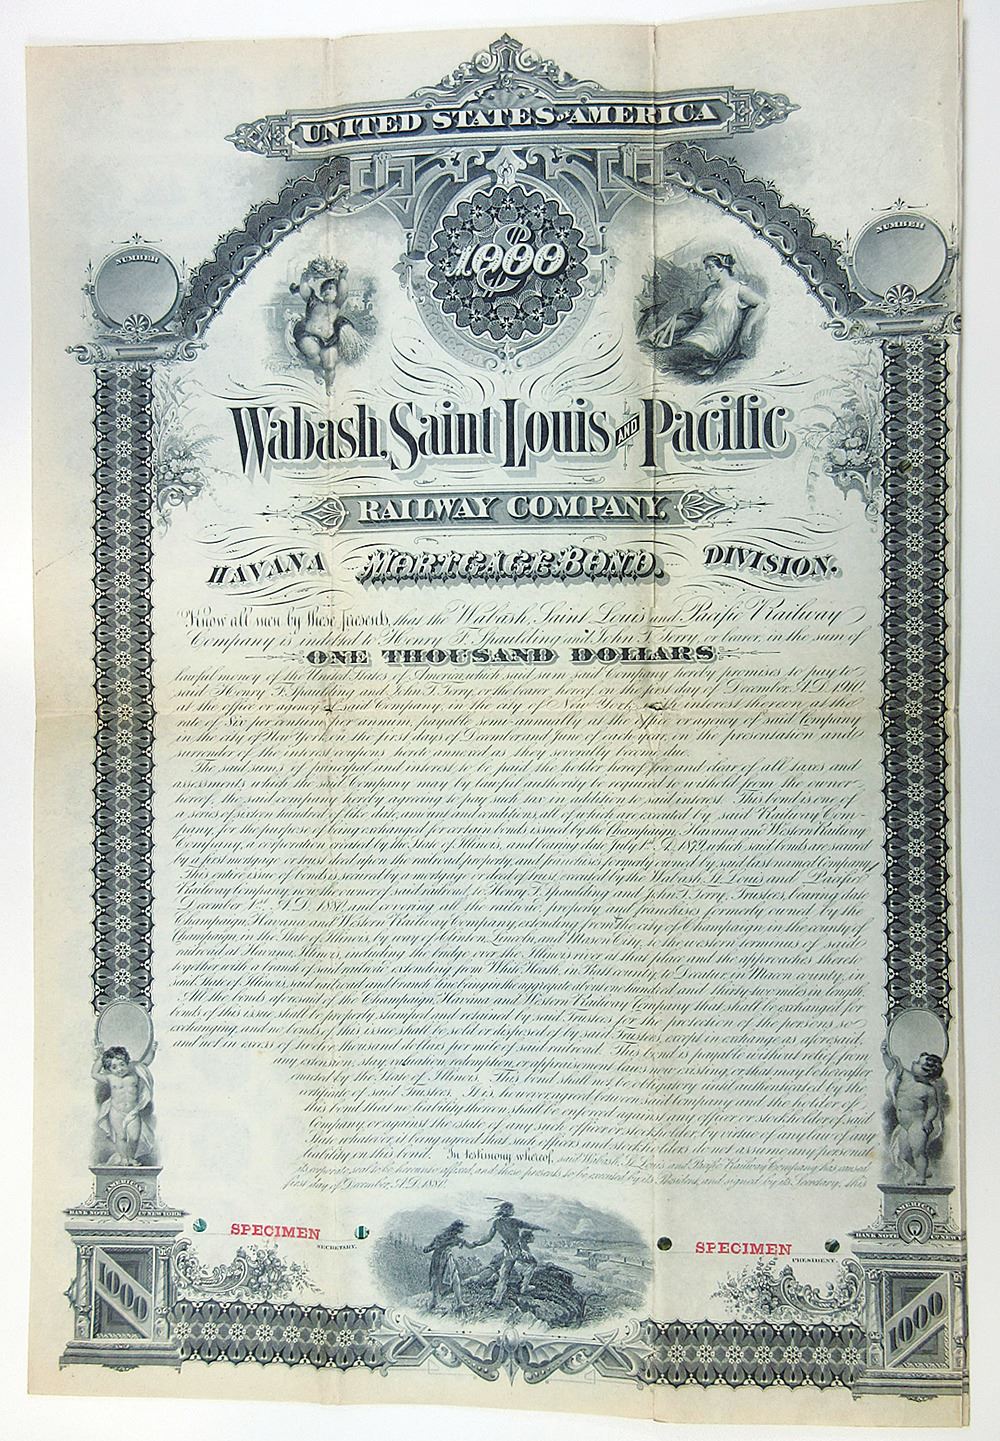 UNITED STATES OF AMERICA
$1000
NUMBER
NUMBER
Wabash, Saint Louis AND Pacific
RAILWAY COMPANY.
HAVANA MORTGAGE BOND. DIVISION.
Know all men by these presents, that the Wabash, Saint Louis and Pacific Railway
Company is indebted to Henry F. Spaulding and John T. Terry, or bearer, in the sum of
ONE THOUSAND DOLLARS
lawful money of the United States of America, which said sum said Company hereby promises to pay to
said Henry F. Spaulding and John T. Terry, or the bearer hereof, on the first day of December, A.D. 1910,
at the office or agency of said Company, in the city of New York, with interest thereon, at the
rate of Six per centum per annum, payable semi-annually, at the office or agency of said Company
in the city of New York, on the first days of December and June of each year, on the presentation and
surrender of the interest coupons hereto annexed as they severally become due.
The said sums of principal and interest to be paid the holder hereof free and clear of all taxes and
assessments which the said Company may by lawful authority be required to withold from the owner
hereof, the said company hereby agreeing to pay such tax in addition to said interest. This bond is one of
a series of sixteen hundred of like date, amount and conditions, all of which are executed by said Railway Com-
pany, for the purpose of being exchanged for certain bonds issued by the Champaign, Havana and Western Railway
Company, a corporation created by the State of Illinois, and bearing date July 1st A.D. 1879, which said bonds are secured
by a first mortgage or trust deed upon the railroad property, and franchises formerly owned by said last named Company.
This entire issue of bonds is secured by a mortgage or deed of trust, executed by the Wabash, St. Louis and Pacific
Railway Company, now the owner of said railroad, to Henry F. Spaulding and John T. Terry, Trustees, bearing date
December 1st A.D. 1880, and covering all the railroad, property and franchises formerly owned by the
Champaign, Havana and Western Railway Company, extending from The city of Champaign in the county of
Champaign, in the State of Illinois, by way of Clinton, Lincoln, and Mason City, to the western terminus of said
railroad at Havana, Illinois, including the bridge over the Illinois river at that place and the approaches thereto
together with a branch of said railroad extending from White Heath, in Piatt county, to Decatur, in Macon county, in
said State of Illinois, said railroad and branch line being in the aggregate about one hundred and thirty two miles in length.
All the bonds aforesaid of the Champaign, Havana and Western Railway Company that shall be exchanged for
bonds of this issue shall be properly stamped and retained by said Trustees for the protection of the persons so
exchanging, and no bonds of this issue shall be sold or disposed of by said Trustees, except in exchange as aforesaid,
and not in excess of twelve thousand dollars per mile of said railroad. This bond is payable without relief from
any extension, stay, valuation redemption or appraisement laws now existing, or that may be hereafter
enacted by the State of Illinois. This bond shall not be obligatory until authenticated by the
certificate of said Trustees. It is, however, agreed between said Company and the holder of
this bond that no liability thereon shall be enforced against any officer or stockholder of said
Company, or against the estate of any such officer or stockholder, by virtue of any law of any
State whatever, it being agreed that such officers and stockholders do not assume any personal
liability on this bond. In testimony whereof, said Wabash, St. Louis and Pacific Railway Company has caused
its corporate seal to be hereunto affixed, and these presents to be executed by its President, and signed by its Secretary, this
first day of December, A.D. 1880.
AMERICAN
BANK NOTE Co NEW YORK
AMERICAN
BANK NOTE Co NEW
SPECIMEN
SECRETARY.
SPECIMEN
PRESIDENT.
1000
1000